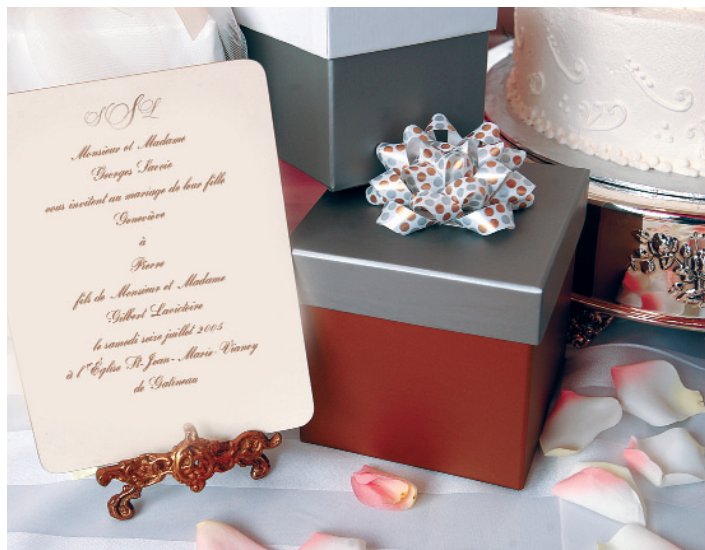 SSL
Monsieur et Madame
Georges Savoie
vous invitent au mariage de leur fille
Geneviève
à
Pierre
fils de Monsieur et Madame
Gilbert Lavictoire
le samedi seize juillet 2005
à l'Église St-Jean-Marie-Vianey
de Gatineau